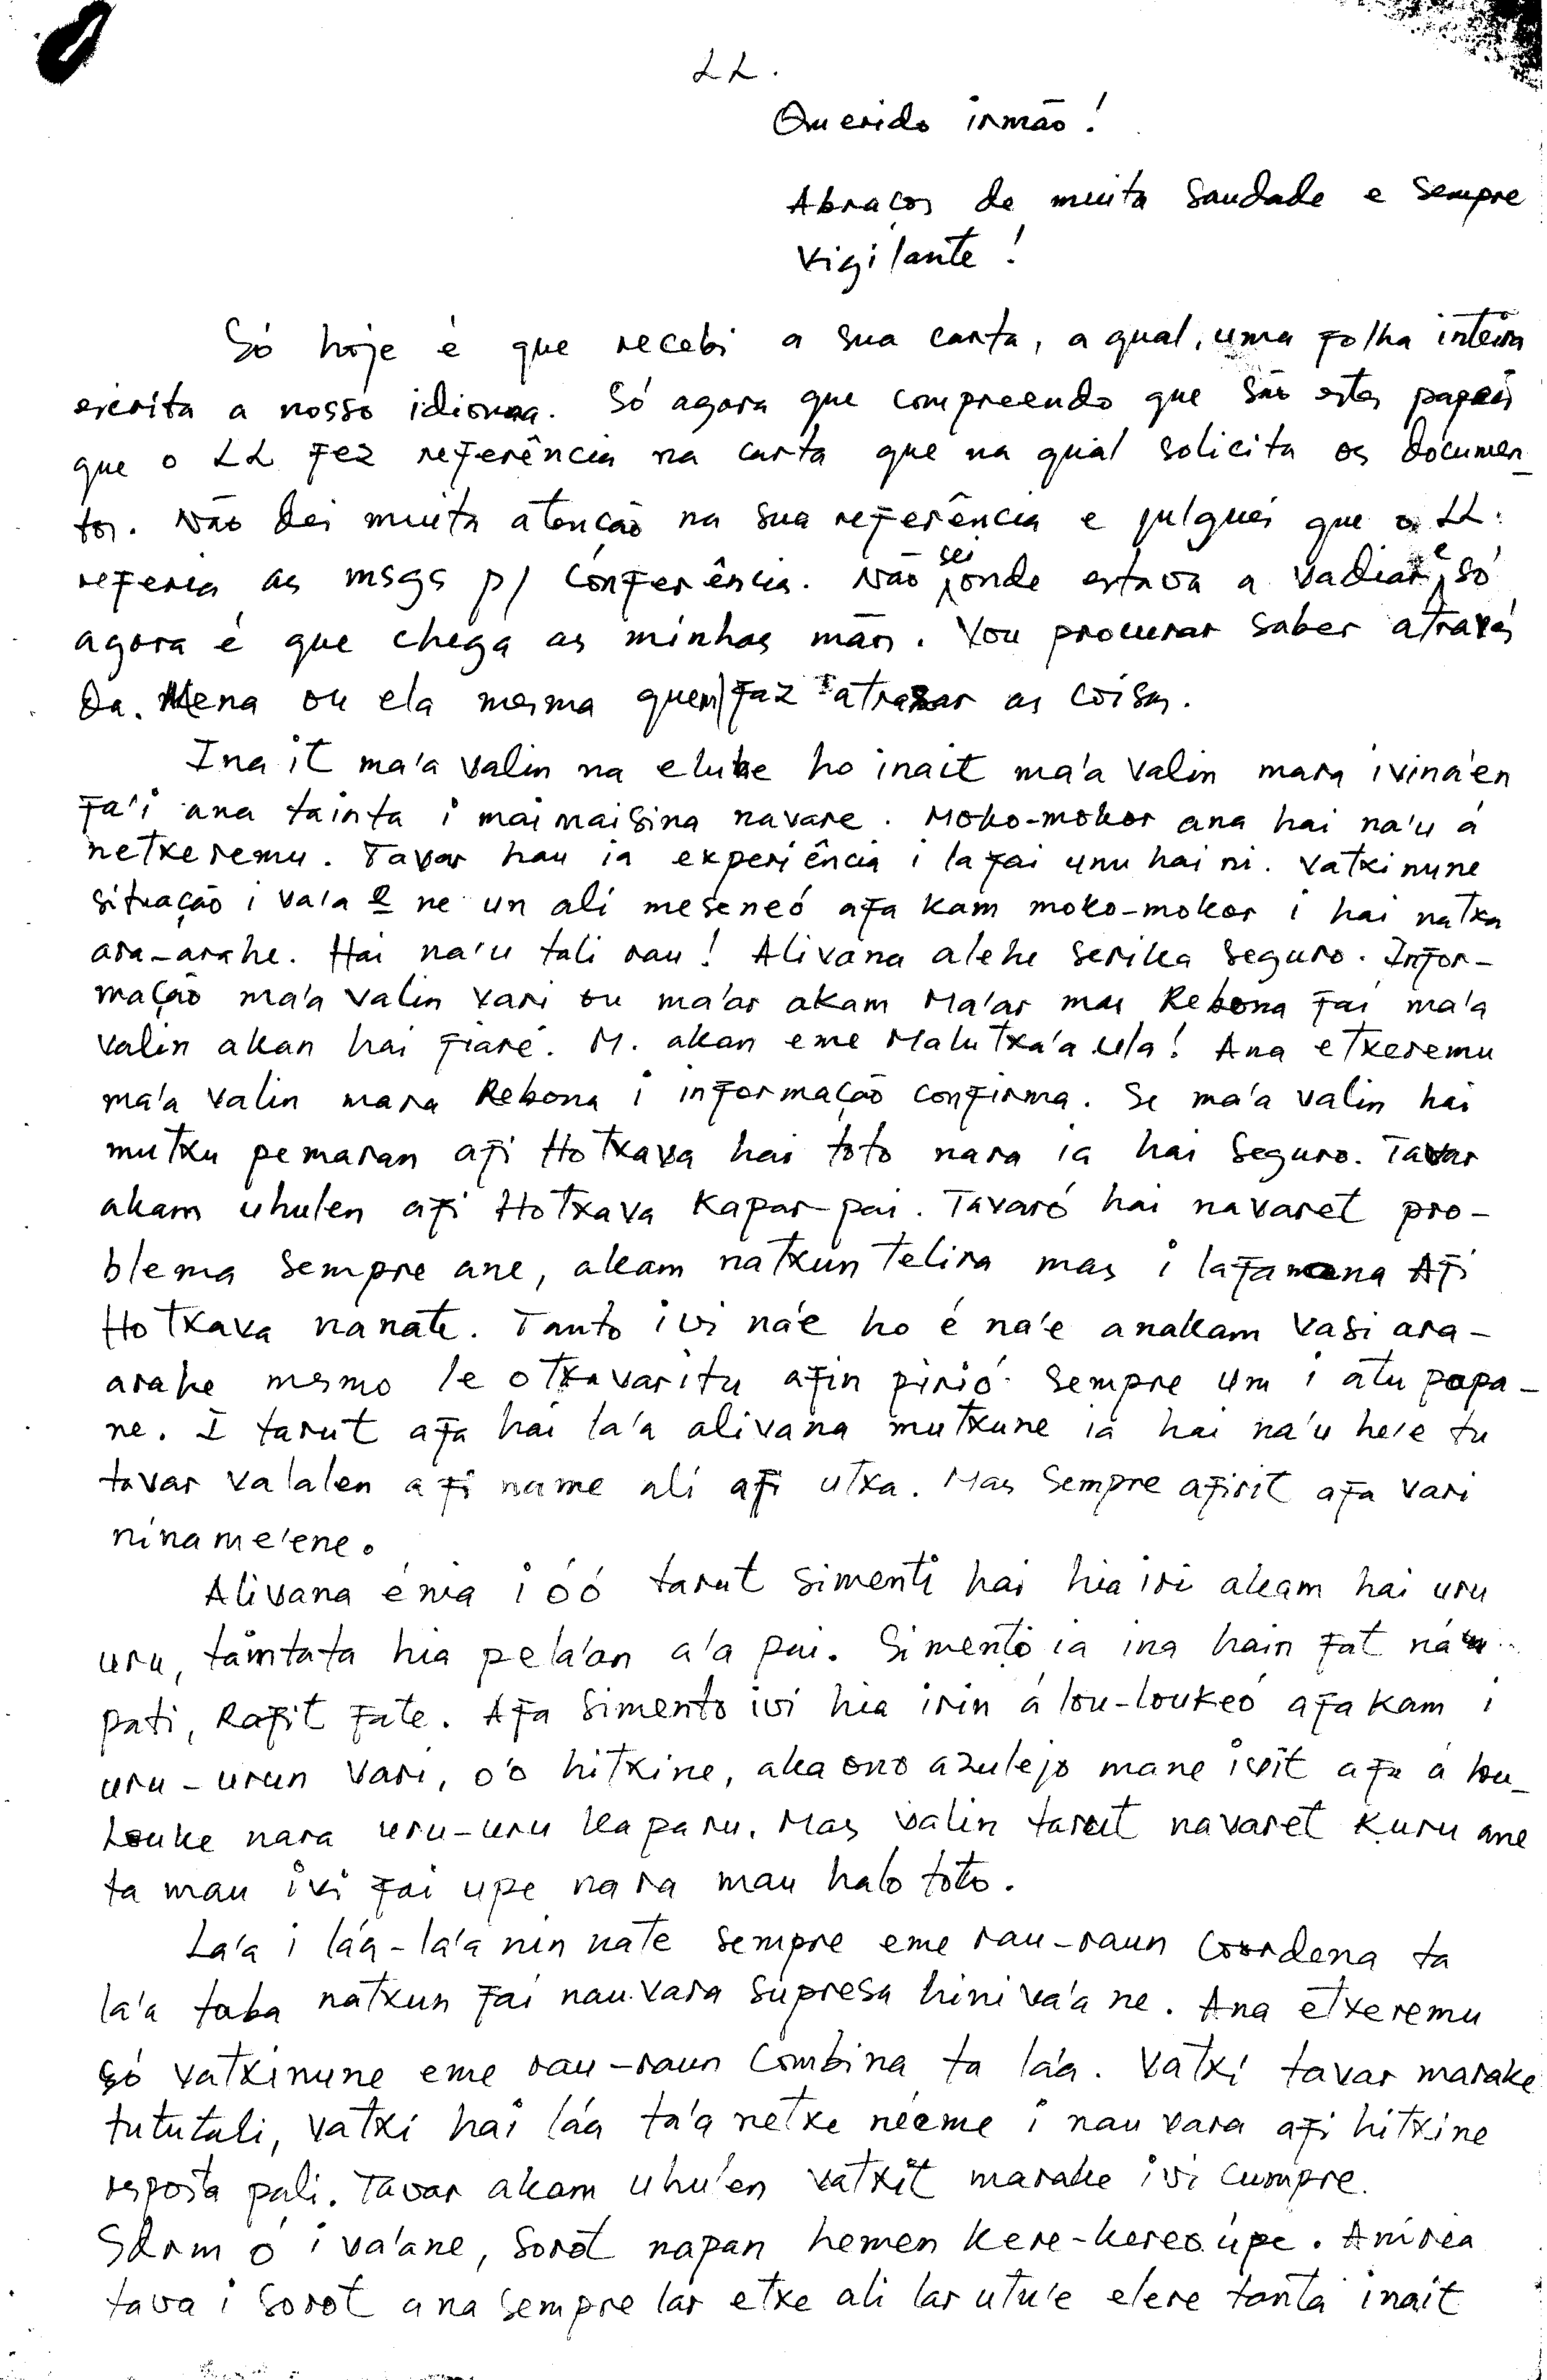 LL.
Querido irmão!
Abraços de muita saudade e sempre
vigilante!
Só hoje é que recebi a sua carta, a qual, uma folha inteira
escrita a nosso idioma. Só agora que compreendo que são estes papéis
que o LL fez referência na carta que na qual solicita os documen-
tos. Não dei muita atenção na sua referência e julguei que o LL.
referia as msgs p/ Conferência. Não sei onde estava a vadiar, e só
agora é que chega as minhas mãos. Vou procurar saber através
da. Mena ou ela mesma quem faz atrasar as coisas.
Ina it ma'a valin na eluhe ho inait ma'a valin mara ivina'en
fa'i ana tainta i mai maisina navare. Moko-mokor ana hai na'u á
netxeremu. Tavar hau ia experiência i lafai unu hai ni. Vatxinune
situação i va'a e ne un ali meseneó afa kam moko-mokor i hai natxa
ara-arahe. Hai na'u tali rau! Alivana alehe serika seguro. Infor-
mação ma'a valin vari ou ma'ar akam Ma'ar mas Rebona fai ma'a
valin akan hai fiaré. M. akan eme Malutxa'a ula! Ana etxeremu
ma'a valin mara Rebona i informação confirma. Se ma'a valin hai
mutxu pemaran afi Hotxava hai toto nara ia hai seguro. Tavar
akam uhulen afi Hotxava Kapar-pai. Tavaró hai navaret pro-
blema sempre ane, akam natxun telira mas i lafamana Afi
Hotxava nanate. Tanto ivi ná'e ho é na'e anakam vasi ara-
arahe mesmo le otxavaritu afin pirió. Sempre um i atu papa-
ne. I tarut afa hai la'a alivana mutxune ia hai na'u he'e tu
tavar valalen afi name ali afi utxa. Mas sempre afirit afa vari
niname'ene.
Alivana énia i óó tarut simenti hai hia iri akam hai uru
uru, taintata hia pela'an a'a pai. Simento ia ina hain fat ná'u
pati, Rafit fate. Afa simento ivi hia irin á lou-loukeó afa kam i
uru-urun vari, o'o hitxine, aka ono azulejo mane ivit afa á lou-
louke nara uru-uru kaparu. Mas valin tarut navaret kuru ane
ta mau ivi fai upe nara mau halo toto.
La'a i lá'a-la'a nin nate sempre eme rau-raun coordena ta
la'a taba natxun fai nau vara supresa hiniva'a ne. Ana etxeremu
só vatxinune eme rau-raun combina ta lá'a. Vatxi tavar marake
tututali, vatxi hai láa ta'a netxe néeme i nau vara afi hitxine
resposta pali. Tavar akam uhu'en vatxit marake ivi cumpre.
Sdrm ó i va'ane, sorot napan hemen kere-kereo úpe. Anirea
tava i sorot ana sempre lar etxe ali lar utu'e elere tanta inait